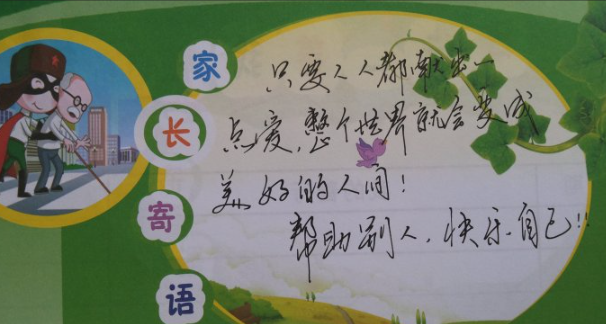 家长寄语
只要人人都献出一
点爱,整个世界就会变成
美好的人间!
帮助别人,快乐自己!!